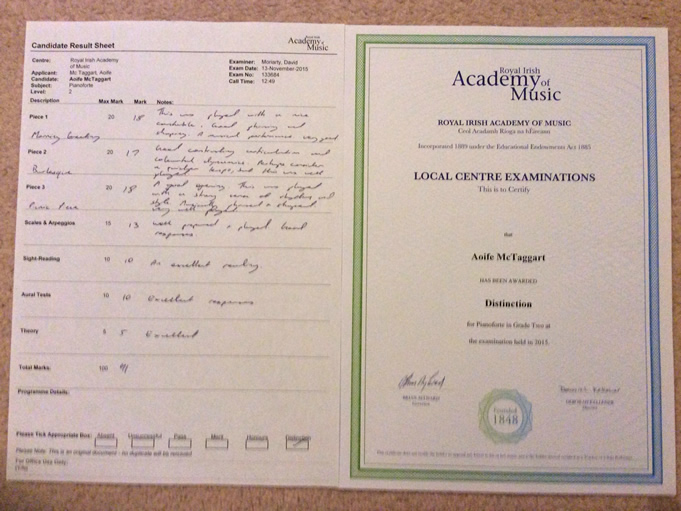 Candidate Result Sheet
Royal Irish
Academy of
Music
Centre: Royal Irish Academy of Music
Applicant: Mc Taggart, Aoife
Candidate: Aoife McTaggart
Subject: Pianoforte
Level: 2
Examiner: Moriarty, David
Exam Date: 13-November-2015
Exam No: 133684
Call Time: 12:49
Description Max Mark Mark Notes:
Piece 1 20 18 This was played with a nice
Good phrasing and
shaping. A musical performance very good
Piece 2 20 17 Good contrasting articulation and
Burlesque
played
Piece 3 20 18 A good opening. This was played
with a strong sense of rhythm and
style. phrased & shaped
very well played
Scales & Arpeggios 15 13 well prepared & played. Good
responses
Sight-Reading 10 10 An excellent reading.
Aural Tests 10 10 Excellent responses
Theory 5 5 Excellent
Total Marks: 100 91
Programme Details:
Please Tick Appropriate Box: Absent Unsuccessful Pass Merit Honours Distinction
Please Note: This is an original document - no duplicate will be reissued
For Office Use Only:
Royal Irish
Academy of
Music
ROYAL IRISH ACADEMY OF MUSIC
Ceol Acadamh Ríoga na hÉireann
Incorporated 1889 under the Educational Endowments Act 1885
LOCAL CENTRE EXAMINATIONS
This is to Certify
that
Aoife McTaggart
HAS BEEN AWARDED
Distinction
for Pianoforte in Grade Two at
the examination held in 2015
Founded
1848